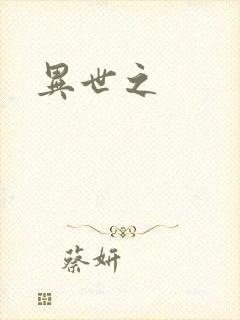 異世之
蔡妍